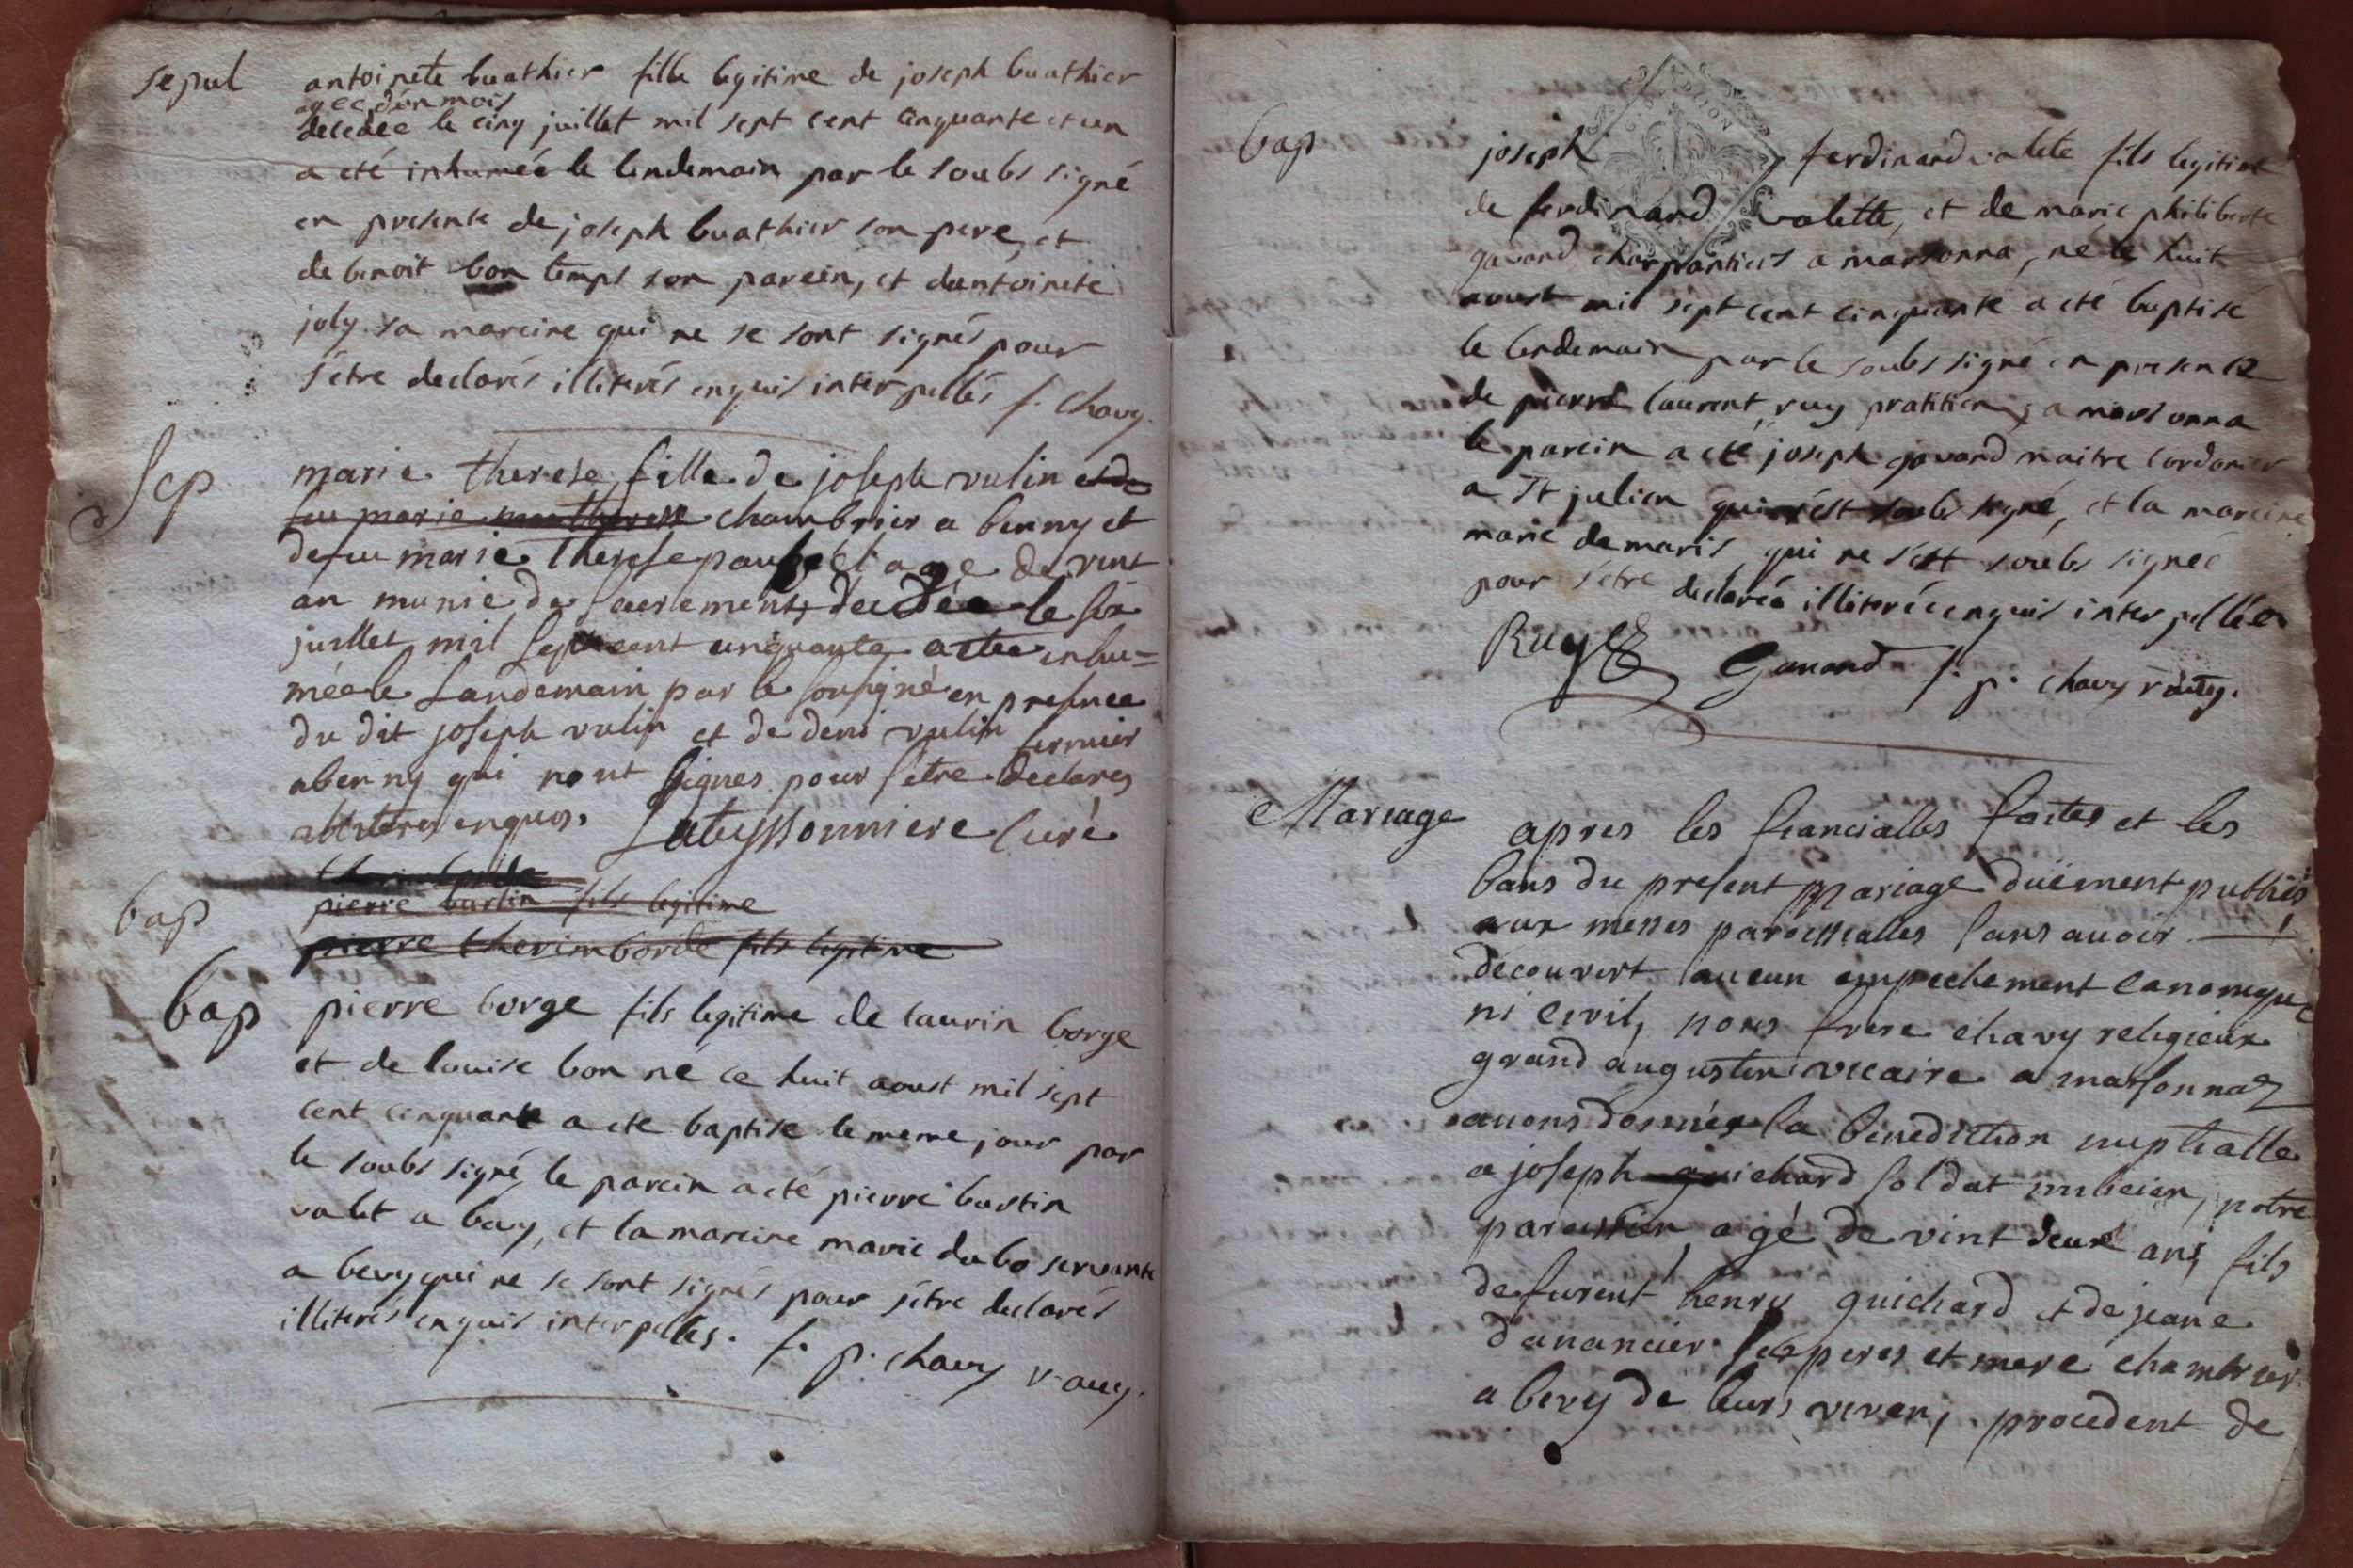 sepul
antoinete buathier fille legitime de joseph buathier
agee d'un mois
decedee le cinq juillet mil sept cent cinquante et un
a eté inhumée le lendemain par le soubs signé
en presente de joseph buathier son pere, et
de benoit bon temps son parein, et dantoinete
joly sa mareine qui ne se sont signés pour
s'etre declarés illiterés enquis interpellés f. Chavy.
Sep
marie therese fille de joseph vulin et de
feu marie chambrier a benny et
defeu marie therese age de vint
an munie de sacrements decedée le six
juillet mil sept cent cinquante a etee inhu=
mée le Landemain par le sousigné en presence
du dit joseph vulin et de deni vulin fermier
a benny qui nont signes pour setre declares
illiteres enquis. Lateyssonniere Curé
bap
pierre burtin fils legitime
pierre therimborde fils legitime
bap
pierre borge fils legitime de laurin borge
et de louise bon né ce huit aoust mil sept
cent cinquante a ete baptise le meme jour par
le soubs signé, le parein a eté pierre burtin
valet a bevy, et la mareine marie dubo servante
a bevy qui ne se sont signés pour s'etre declarés
illiterés enquis interpellés. f. p. chavy v. aug.
bap
joseph ferdinand valete fils legitime
de ferdinand valette, et de marie philiberte
gavand charpantiers a marsonna, né le huit
aoust mil sept cent cinquante a eté baptisé
le lendemain par le soubs signé en presence
de pierre laurent ruy pratitien a marsonna
le parein a eté joseph gavand maitre cordonier
a st julien qui s'est soubs signé, et la mareine
marie demaris qui ne s'est soubs signée
pour s'etre declarée illiterée enquis interpellée
Ruy Gavand f. p. chavy v. aug.
Mariage
apres les fiancialles faites et les
bans du present mariage duëment publiés
aux messes paroissialles sans avoir
decouvert aucun empechement canonique
ni civil, nous frere chavy religieux
grand augustin vicaire a marsonnaz
avons donnés la benediction nuptialle
a joseph guichard soldat milicien, notre
paroissien agé de vint deux ans fils
de furent henry guichard et de jeane
danancier ses peres et mere chambrier
a bevy de leurs vivan, procedent de